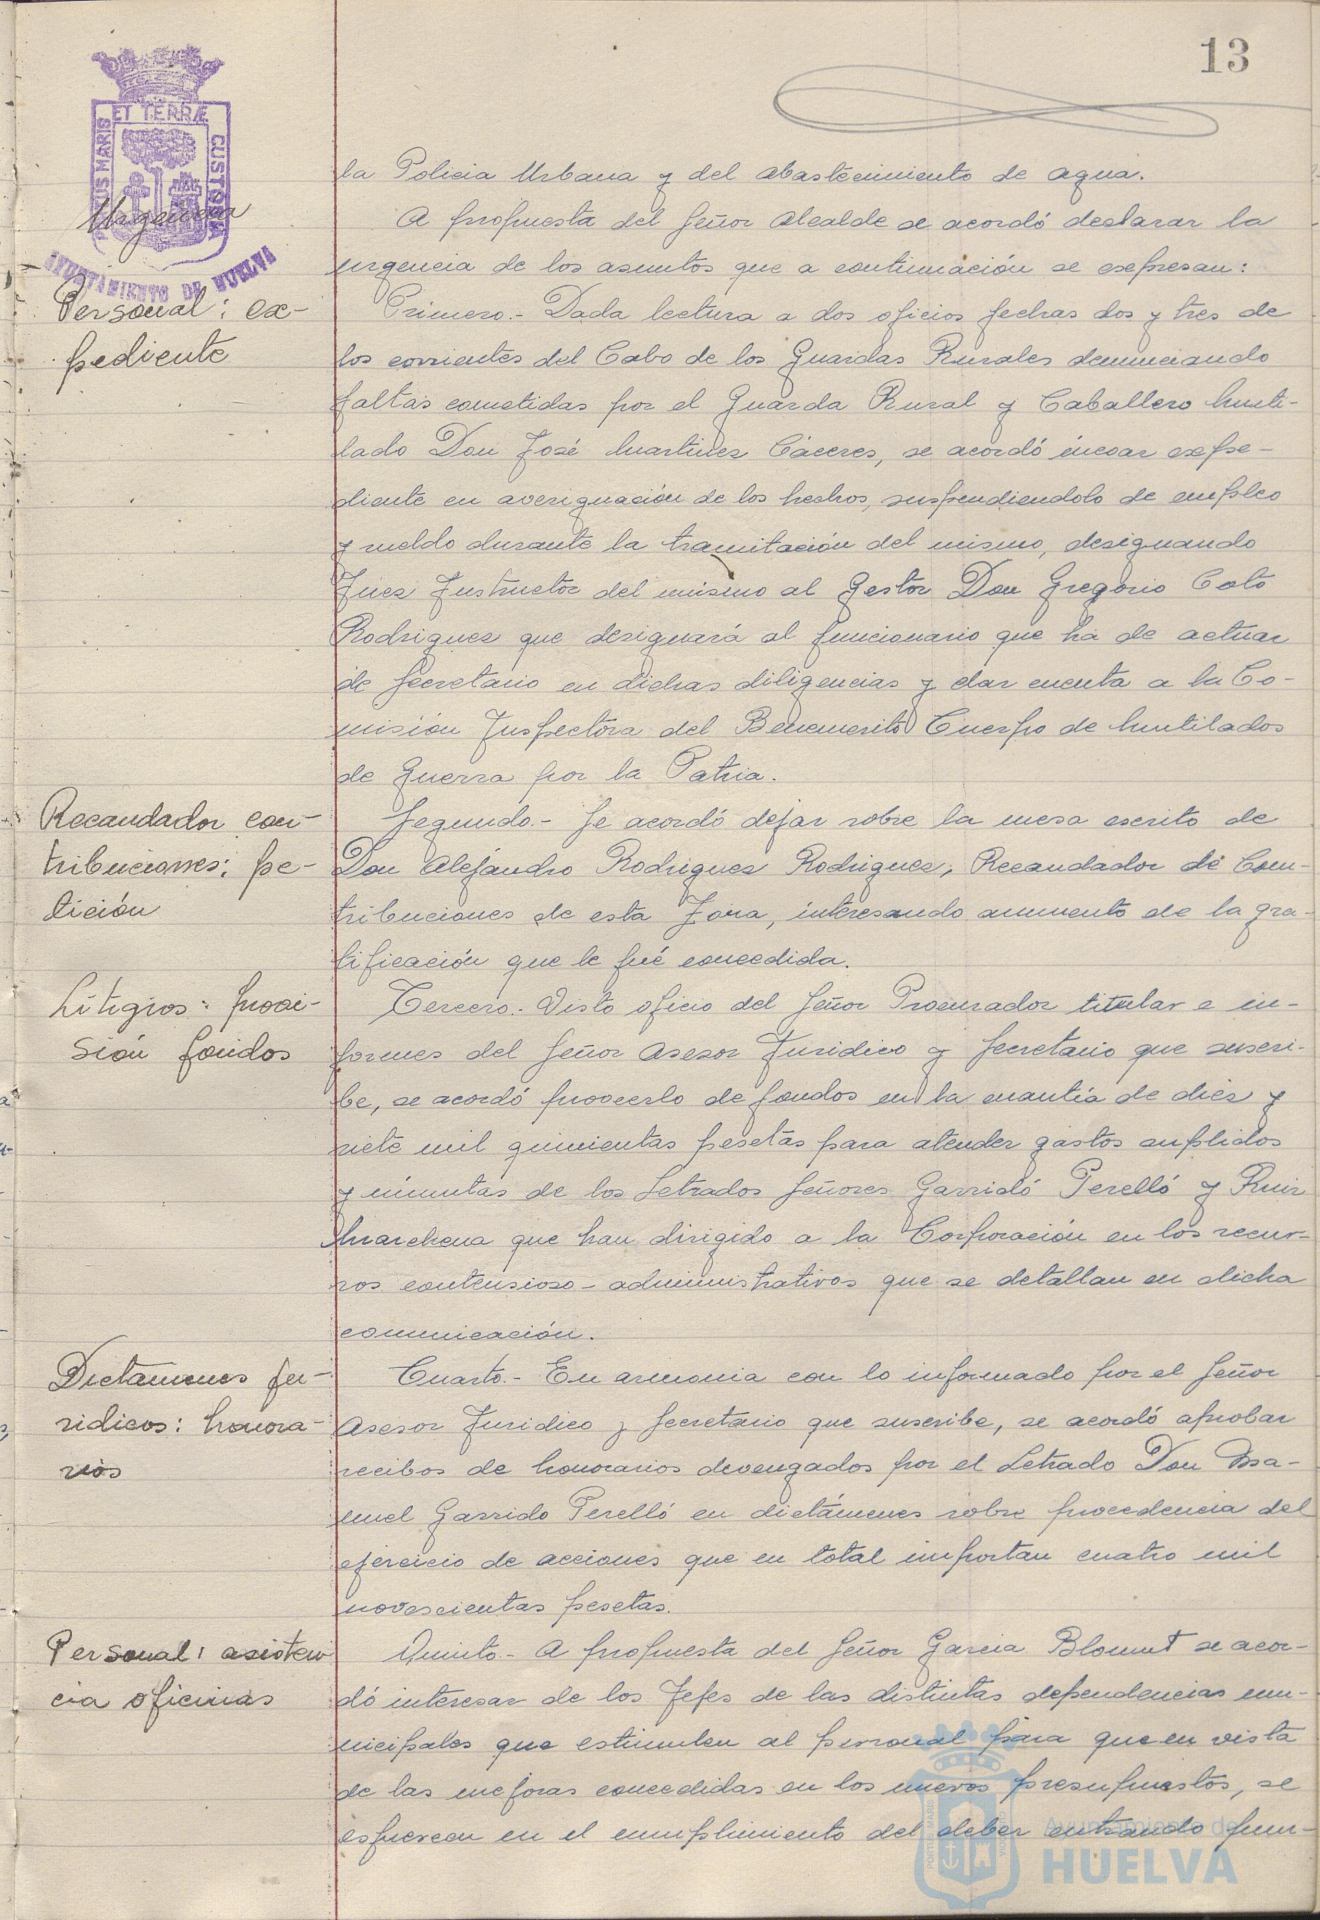 13
PORTUS MARIS ET TERRÆ CUSTODIA
AYUNTAMIENTO DE HUELVA
Urgencia
la Policia Urbana y del abastecimiento de agua.
A propuesta del Señor Alcalde se acordó declarar la
urgencia de los asuntos que a continuación se expresan:
Personal: ex-
pediente
Primero.- Dada lectura a dos oficios fechas dos y tres de
los corrientes del Cabo de los Guardas Rurales denunciando
faltas cometidas por el Guarda Rural y Caballero Muti-
lado Don José Martinez Cáceres, se acordó incoar expe-
diente en averiguación de los hechos, suspendiendolo de empleo
y sueldo durante la tramitación del mismo, designando
Juez Instructor del mismo al Gestor Don Gregorio Coto
Rodriguez que designará al funcionario que ha de actuar
de Secretario en dichas diligencias y dar cuenta a la Co-
misión Inspectora del Benemerito Cuerpo de Mutilados
de Guerra por la Patria.
Recaudador con-
tribuciones: pe-
tición
Segundo.- Se acordó dejar sobre la mesa escrito de
Don Alejandro Rodriguez Rodriguez, Recaudador de Con-
tribuciones de esta Zona, interesando aumento de la gra-
tificación que le fué concedida.
Litigios: provi-
sión fondos
Tercero.- Visto oficio del Señor Procurador titular e in-
formes del Señor Asesor Juridico y Secretario que suscri-
be, se acordó proveerlo de fondos en la cuantía de diez y
siete mil quinientas pesetas para atender gastos suplidos
y minutas de los Letrados Señores Garrido Perelló y Ruiz
Marchena que han dirigido a la Corporación en los recur-
sos contensioso-administrativos que se detallan en dicha
comunicación.
Dictámenes ju-
ridicos: honora-
rios
Cuarto.- En armonia con lo informado por el Señor
Asesor Juridico y Secretario que suscribe, se acordó aprobar
recibos de honorarios devengados por el Letrado Don Ma-
nuel Garrido Perelló en dictámenes sobre procedencia del
ejercicio de acciones que en total importan cuatro mil
novescientas pesetas.
Personal: asisten
cia oficinas
Quinto.- A propuesta del Señor Garcia Blomut se acor-
dó interesar de los Jefes de las distintas dependencias mu-
nicipales que estimulen al personal para que en vista
de las mejoras concedidas en los nuevos presupuestos, se
esfuercen en el cumplimiento del deber entrando pun-
Ayuntamiento de
HUELVA